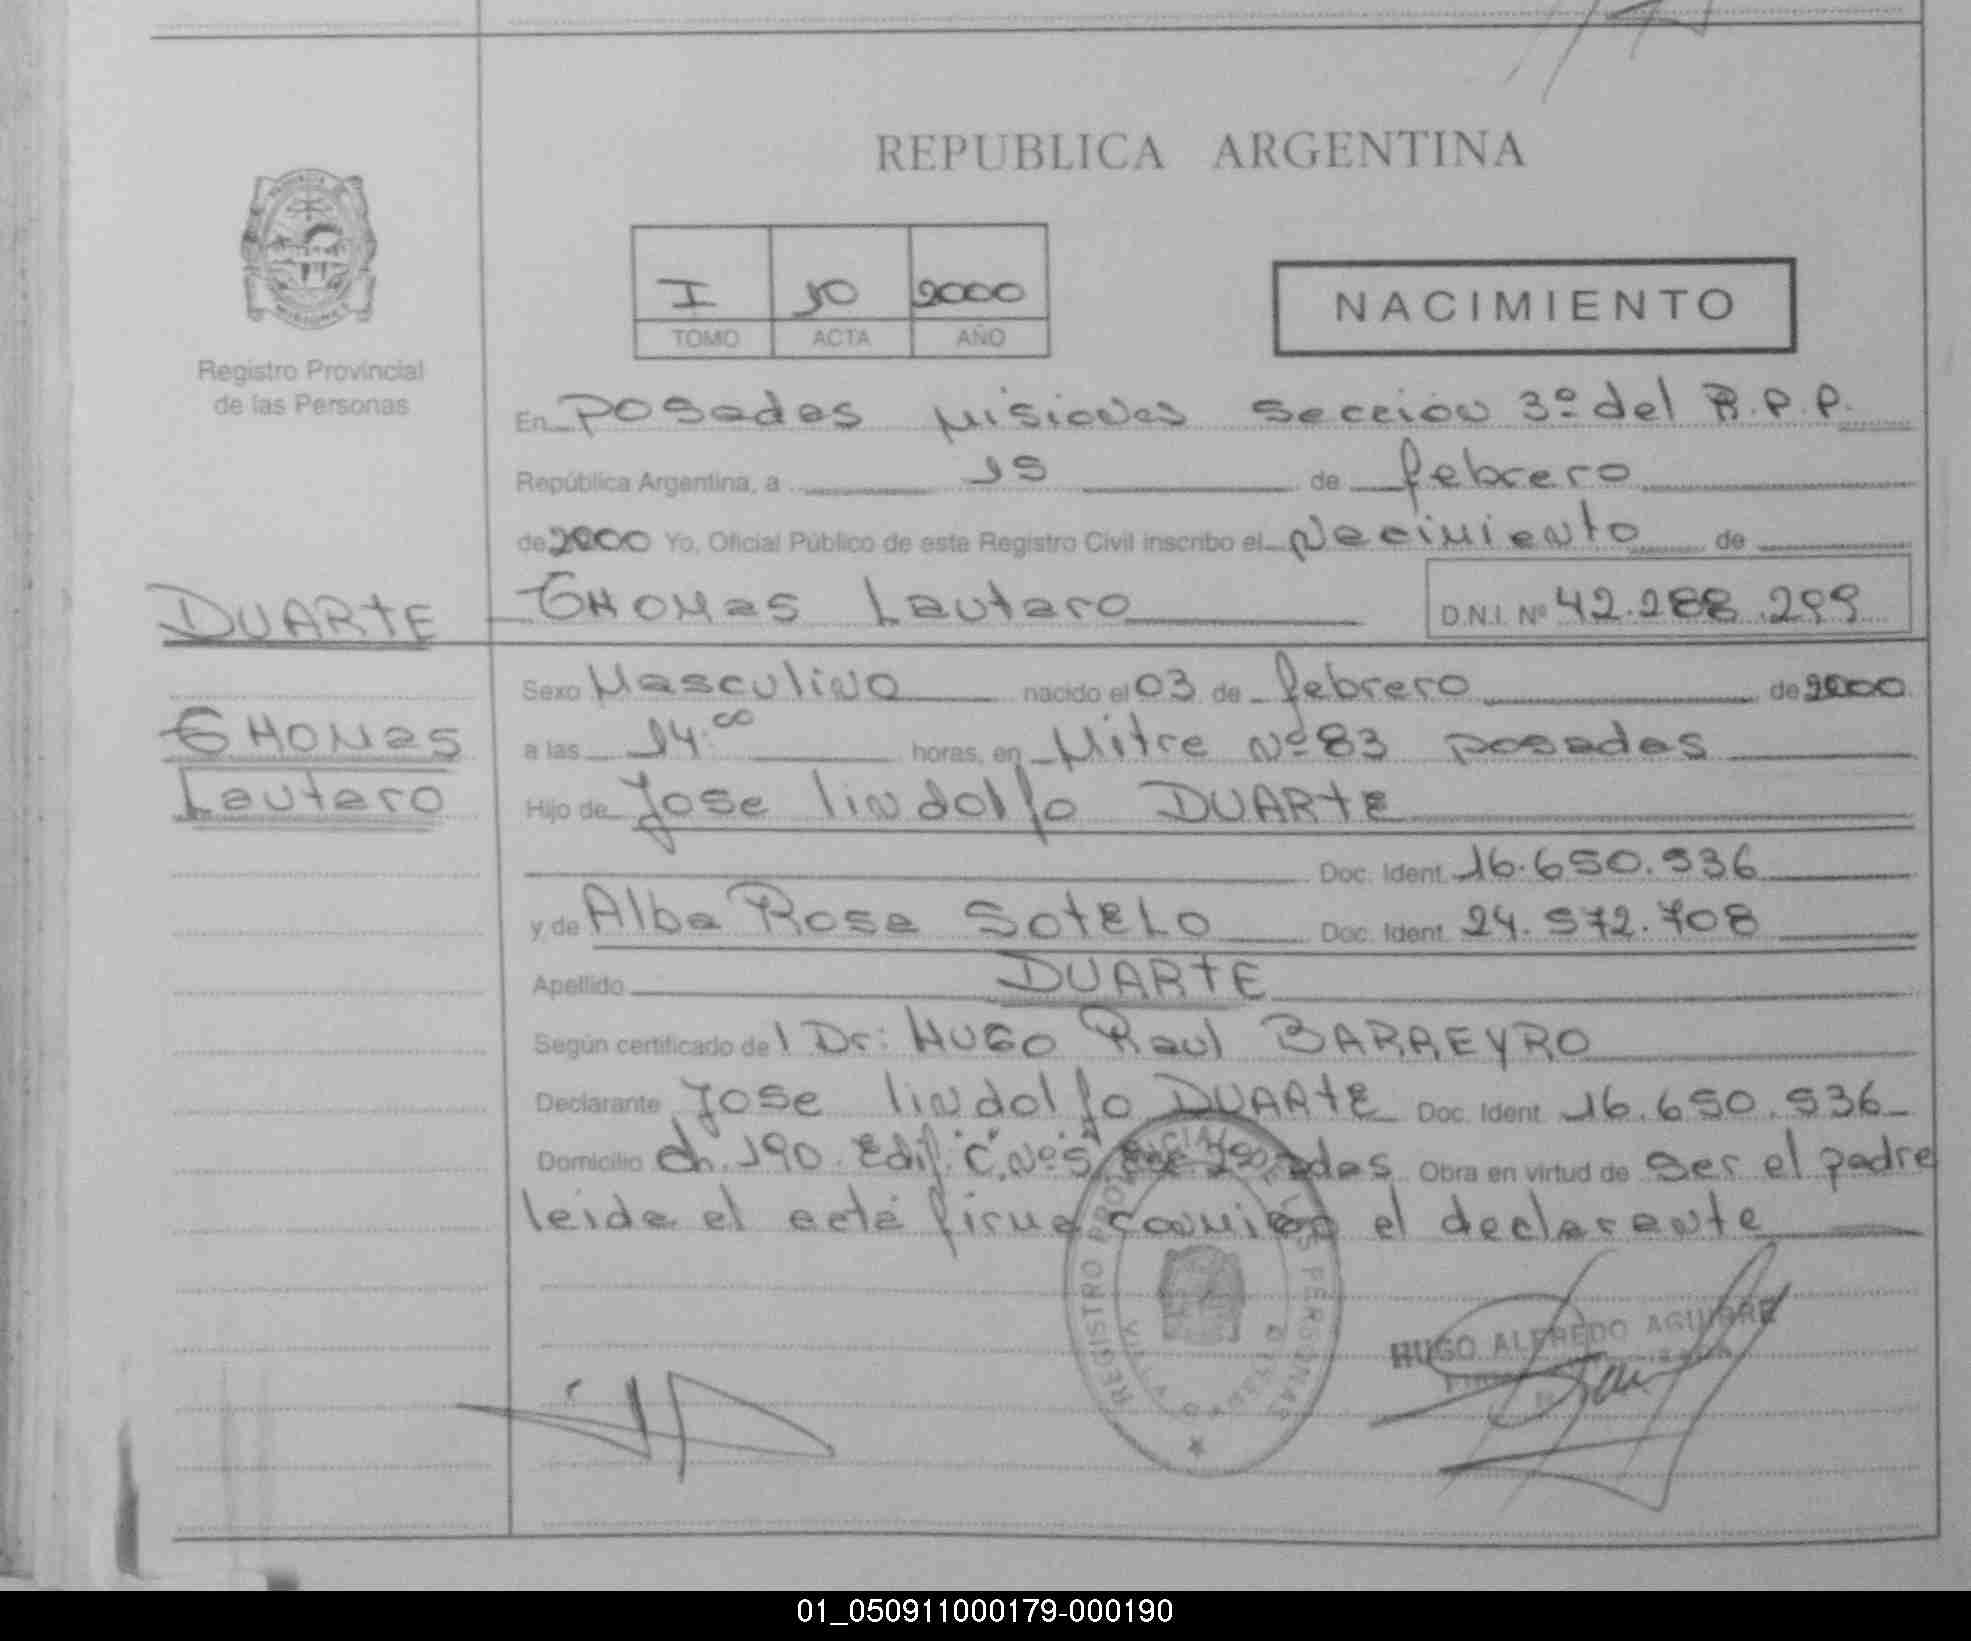 REPUBLICA ARGENTINA
I 10 2000
TOMO ACTA AÑO
NACIMIENTO
Registro Provincial
de las Personas
En Posadas Misiones Sección 3º del R.P.P.
República Argentina, a 15 de febrero
de 2000 Yo, Oficial Público de este Registro Civil inscribo el Nacimiento de
DUARTE
THOMAS Lautaro D.N.I. Nº 42.288.299
Sexo Masculino nacido el 03 de febrero de 2000
THOMAS
Lautaro
a las 14:00 horas, en Mitre Nº 83 posadas
Hijo de Jose lindolfo DUARTE
Doc. Ident. 16.650.536
y de Alba Rosa SOTELO Doc. Ident. 24.572.708
Apellido DUARTE
Según certificado del Dr: HUGO Raul BARREYRO
Declarante Jose lindolfo DUARTE Doc. Ident. 16.650.536
Domicilio ch. 190 Edif. "C" Nº 5 Obra en virtud de ser el padre
leida el acta firma conmigo el declarante
REGISTRO PROVINCIAL DE LAS PERSONAS
HUGO ALFREDO AGUIRRE
01_050911000179-000190